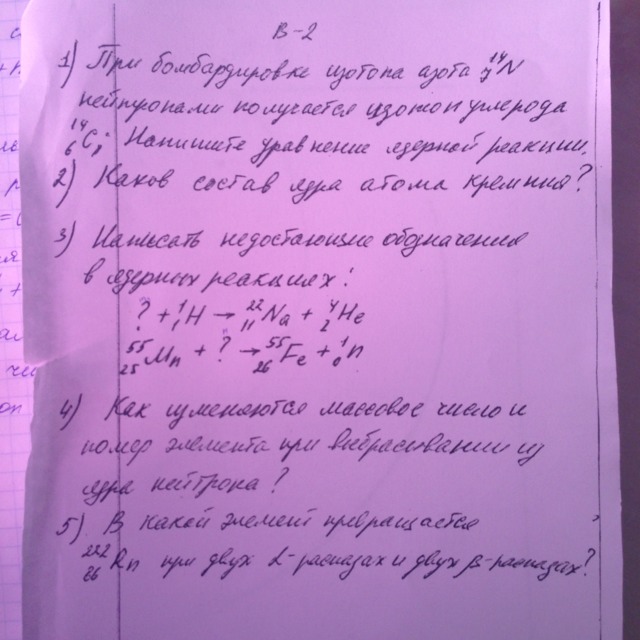 В-2
1) При бомбардировке изотопа азота ¹⁴₇N
нейтронами получается изотоп углерода
¹⁴₆C; Напишите уравнение ядерной реакции.
2) Каков состав ядра атома кремния?
3) Написать недостающие обозначения
в ядерных реакциях:
? + ¹₁H → ²²₁₁Na + ⁴₂He
⁵⁵₂₅Mn + ? → ⁵⁵₂₆Fe + ¹₀n
4) Как изменяются массовое число и
номер элемента при выбрасывании из
ядра нейтрона?
5) В какой элемент превращается
²²²₂₆Rn при двух α-распадах и двух β-распадах?